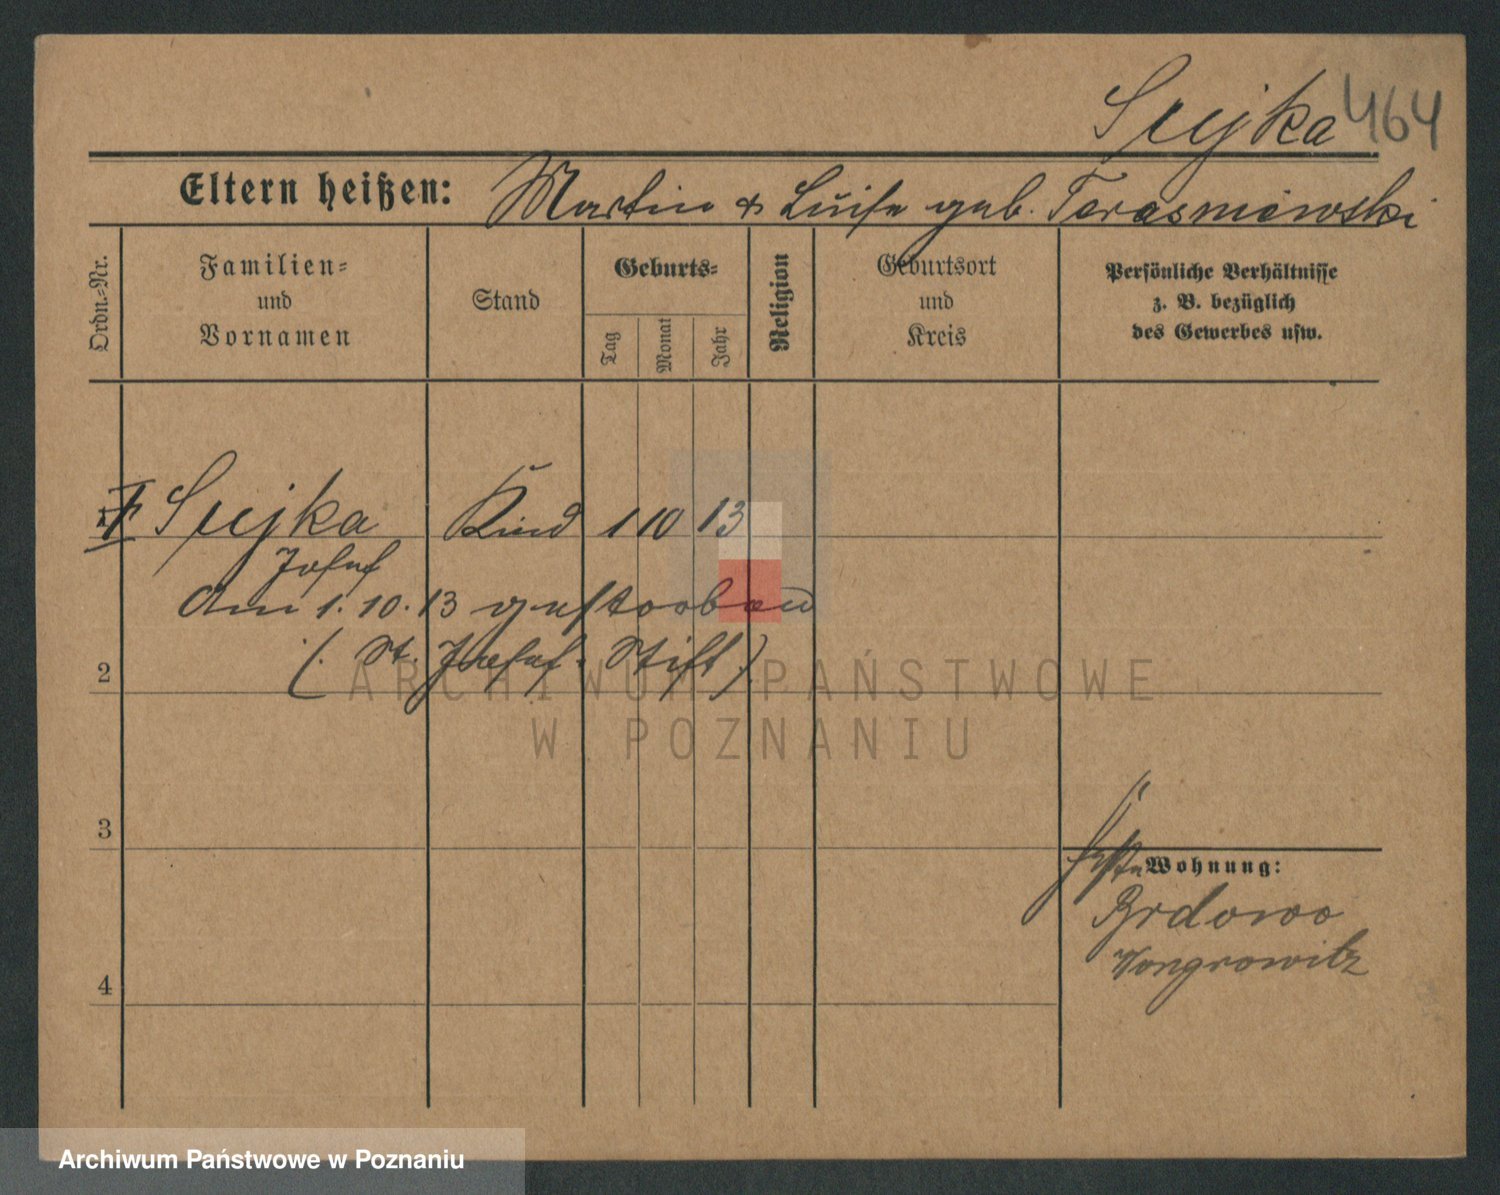 Srejka 464
Eltern heißen: Martin & Luise geb. Terasniewski
Ordn.-Nr.
Familien-
und
Vornamen
Stand
Geburts-
Tag
Monat
Jahr
Religion
Geburtsort
und
Kreis
Persönliche Verhältnisse
z. B. bezüglich
des Gewerbes usw.
Srejka Kind 1 10 13
Josef
Am 1.10.13 gestorben
2 (St. Josefs-Stift).
3
Wohnung:
Brdowo
Wongrowitz
4
ARCHIWUM PAŃSTWOWE
W POZNANIU
Archiwum Państwowe w Poznaniu